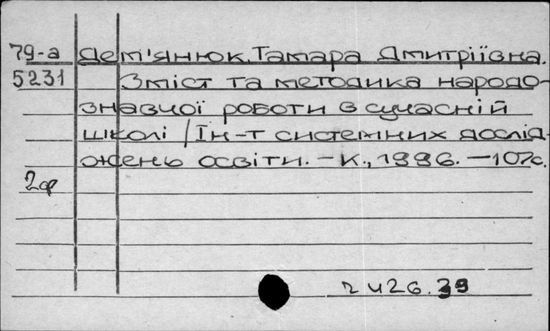 79-а Дем'янюк, Тамара Дмитріївна.
5231 Зміст та методика народо-
знавчої роботи в сучасній
школі / Ін-т системних дослід-
жень освіти. – К., 1996. – 107с.
2ф
2 426.39